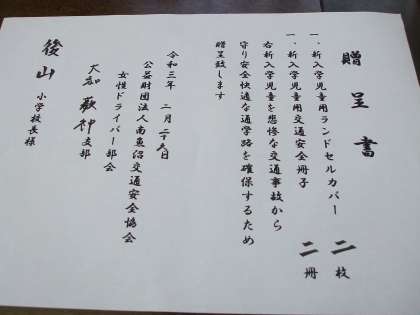 贈呈書
一、新入学児童用ランドセルカバー 二枚
一、新入学児童用交通安全冊子 二冊
右新入学児童を悲惨な交通事故から
守り安全快適な通学路を確保するため
贈呈致します
令和三年 二月二十五日
公益財団法人南魚沼交通安全協会
女性ドライバー部会
大和 支部
後山 小学校長様